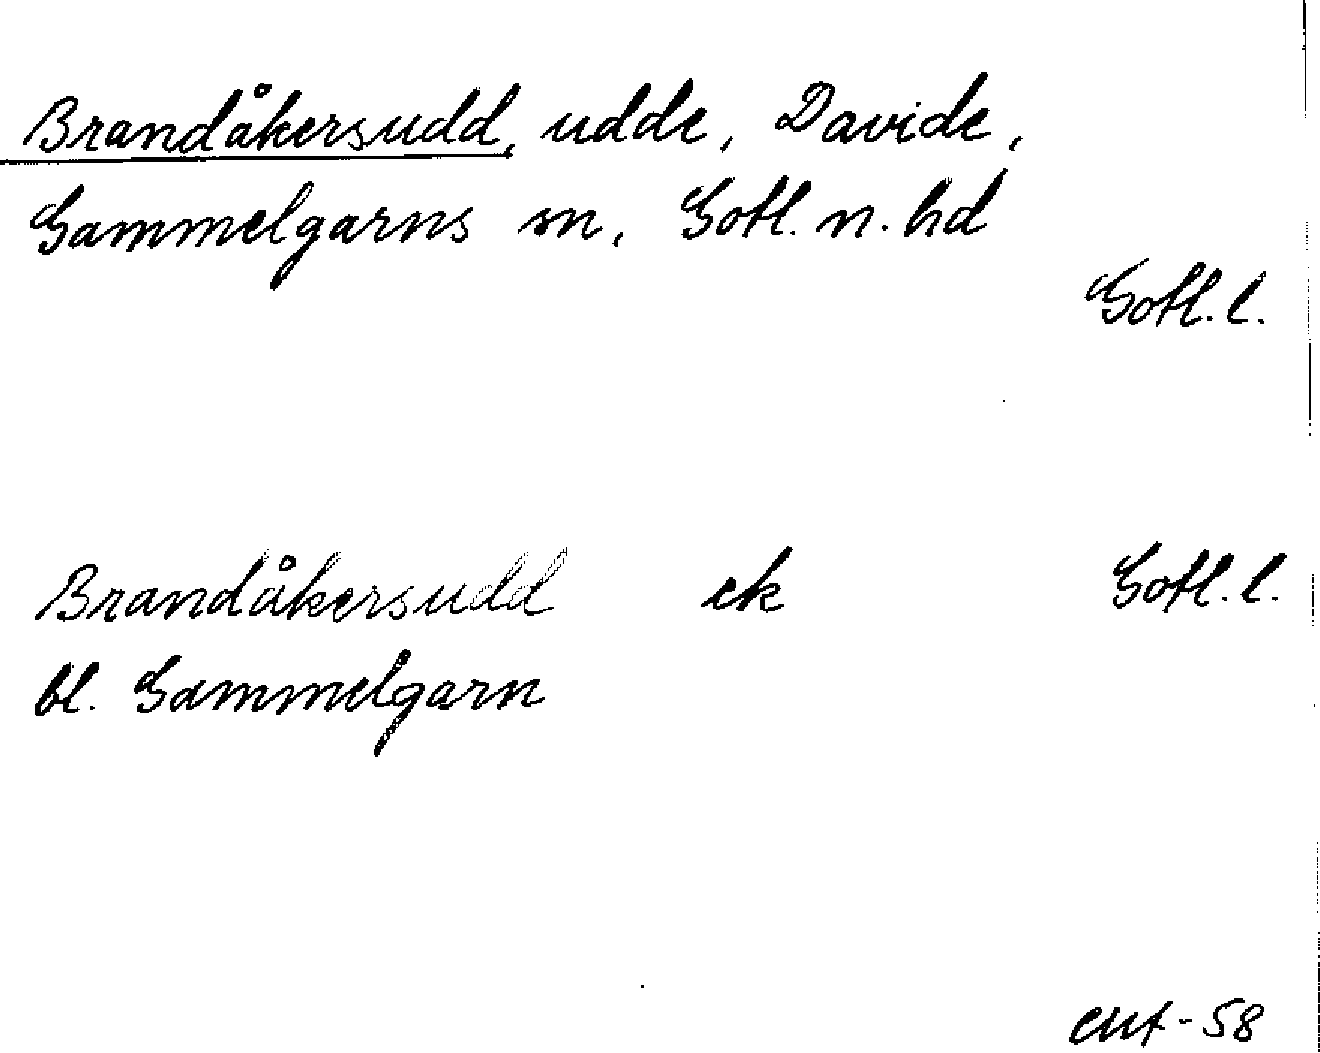 Brandåkersudd, udde, Davide,
Gammelgarns sn, Gotl. n. hd
Gotl. l.
Brandåkersudd ek Gotl. l.
bl. Gammelgarn
-58